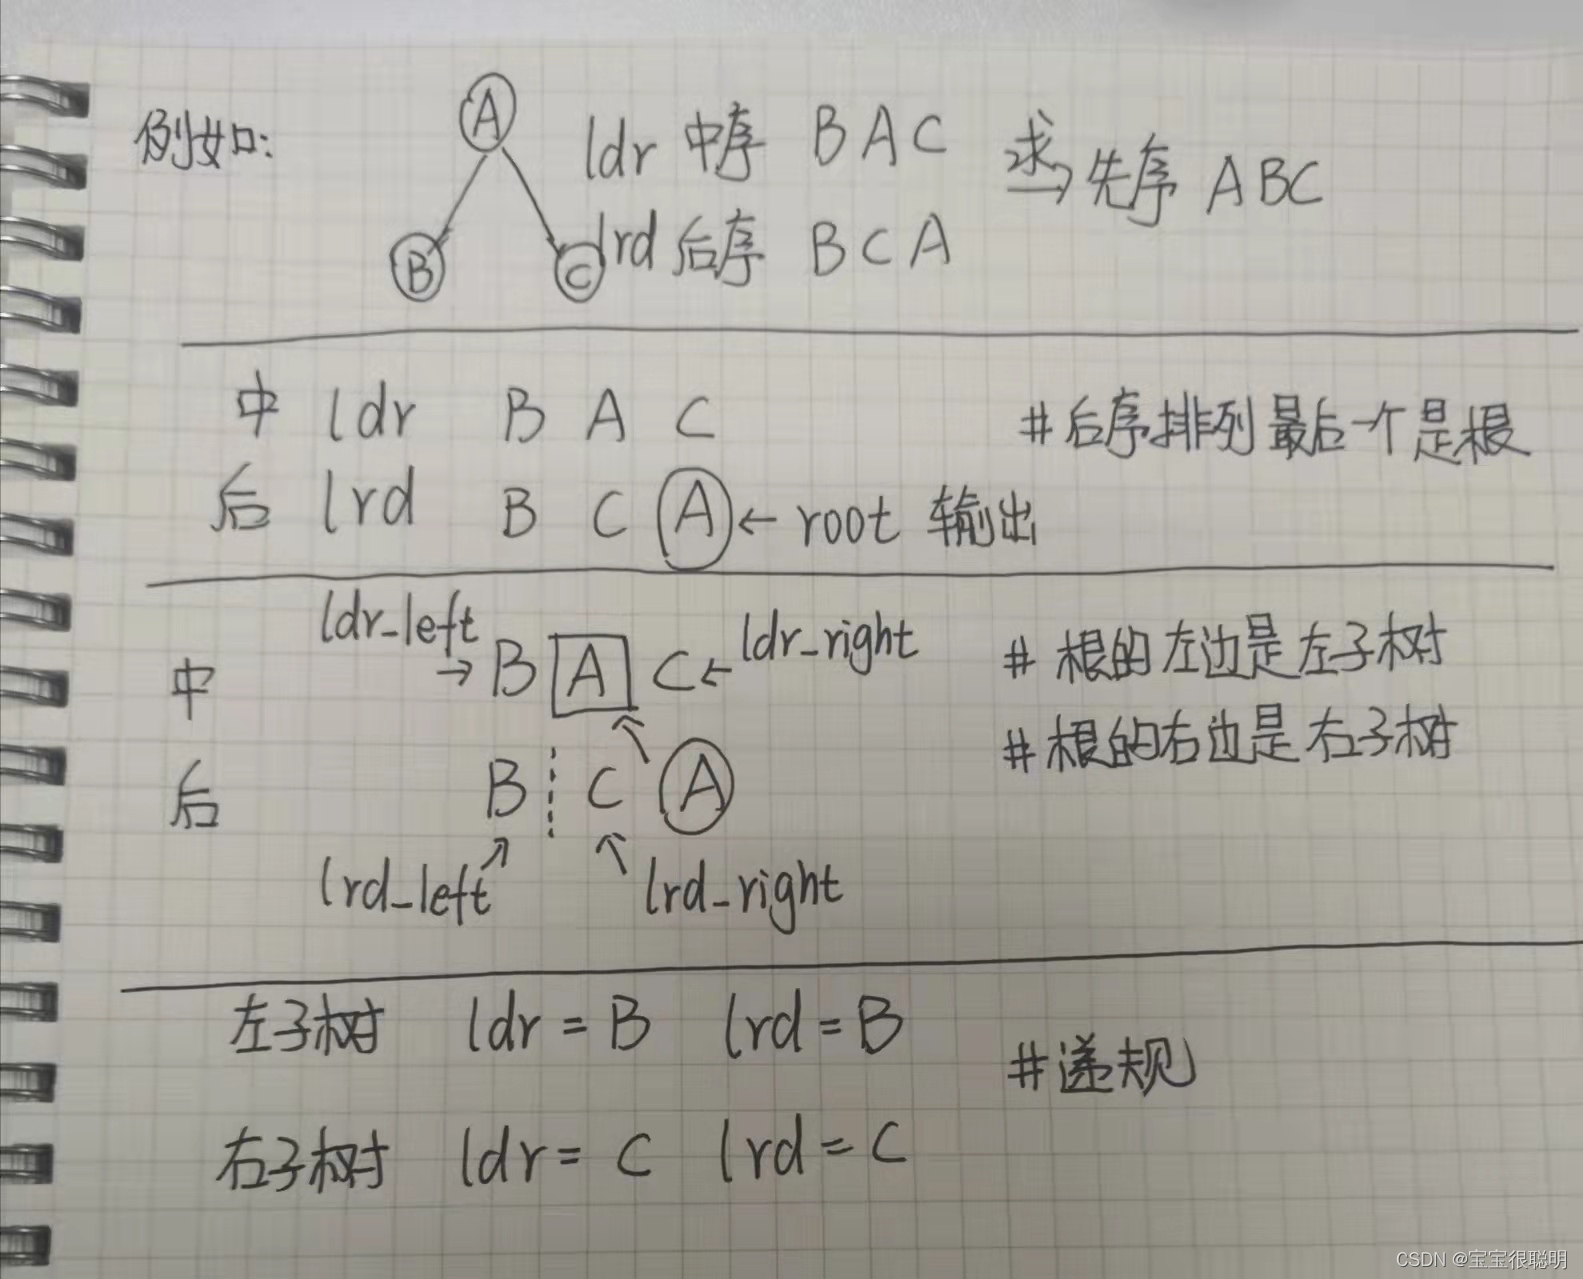 例如: A ldr 中序 B A C 求→ 先序 ABC
B C lrd 后序 B C A
中 ldr B A C #后序排列最后一个是根
后 lrd B C A ← root 输出
ldr_left → B A C ← ldr_right # 根的左边是左子树
中
#根的右边是右子树
后 B C A
lrd_left lrd_right
左子树 ldr = B lrd = B
#递规
右子树 ldr = C lrd = C
CSDN @宝宝很聪明